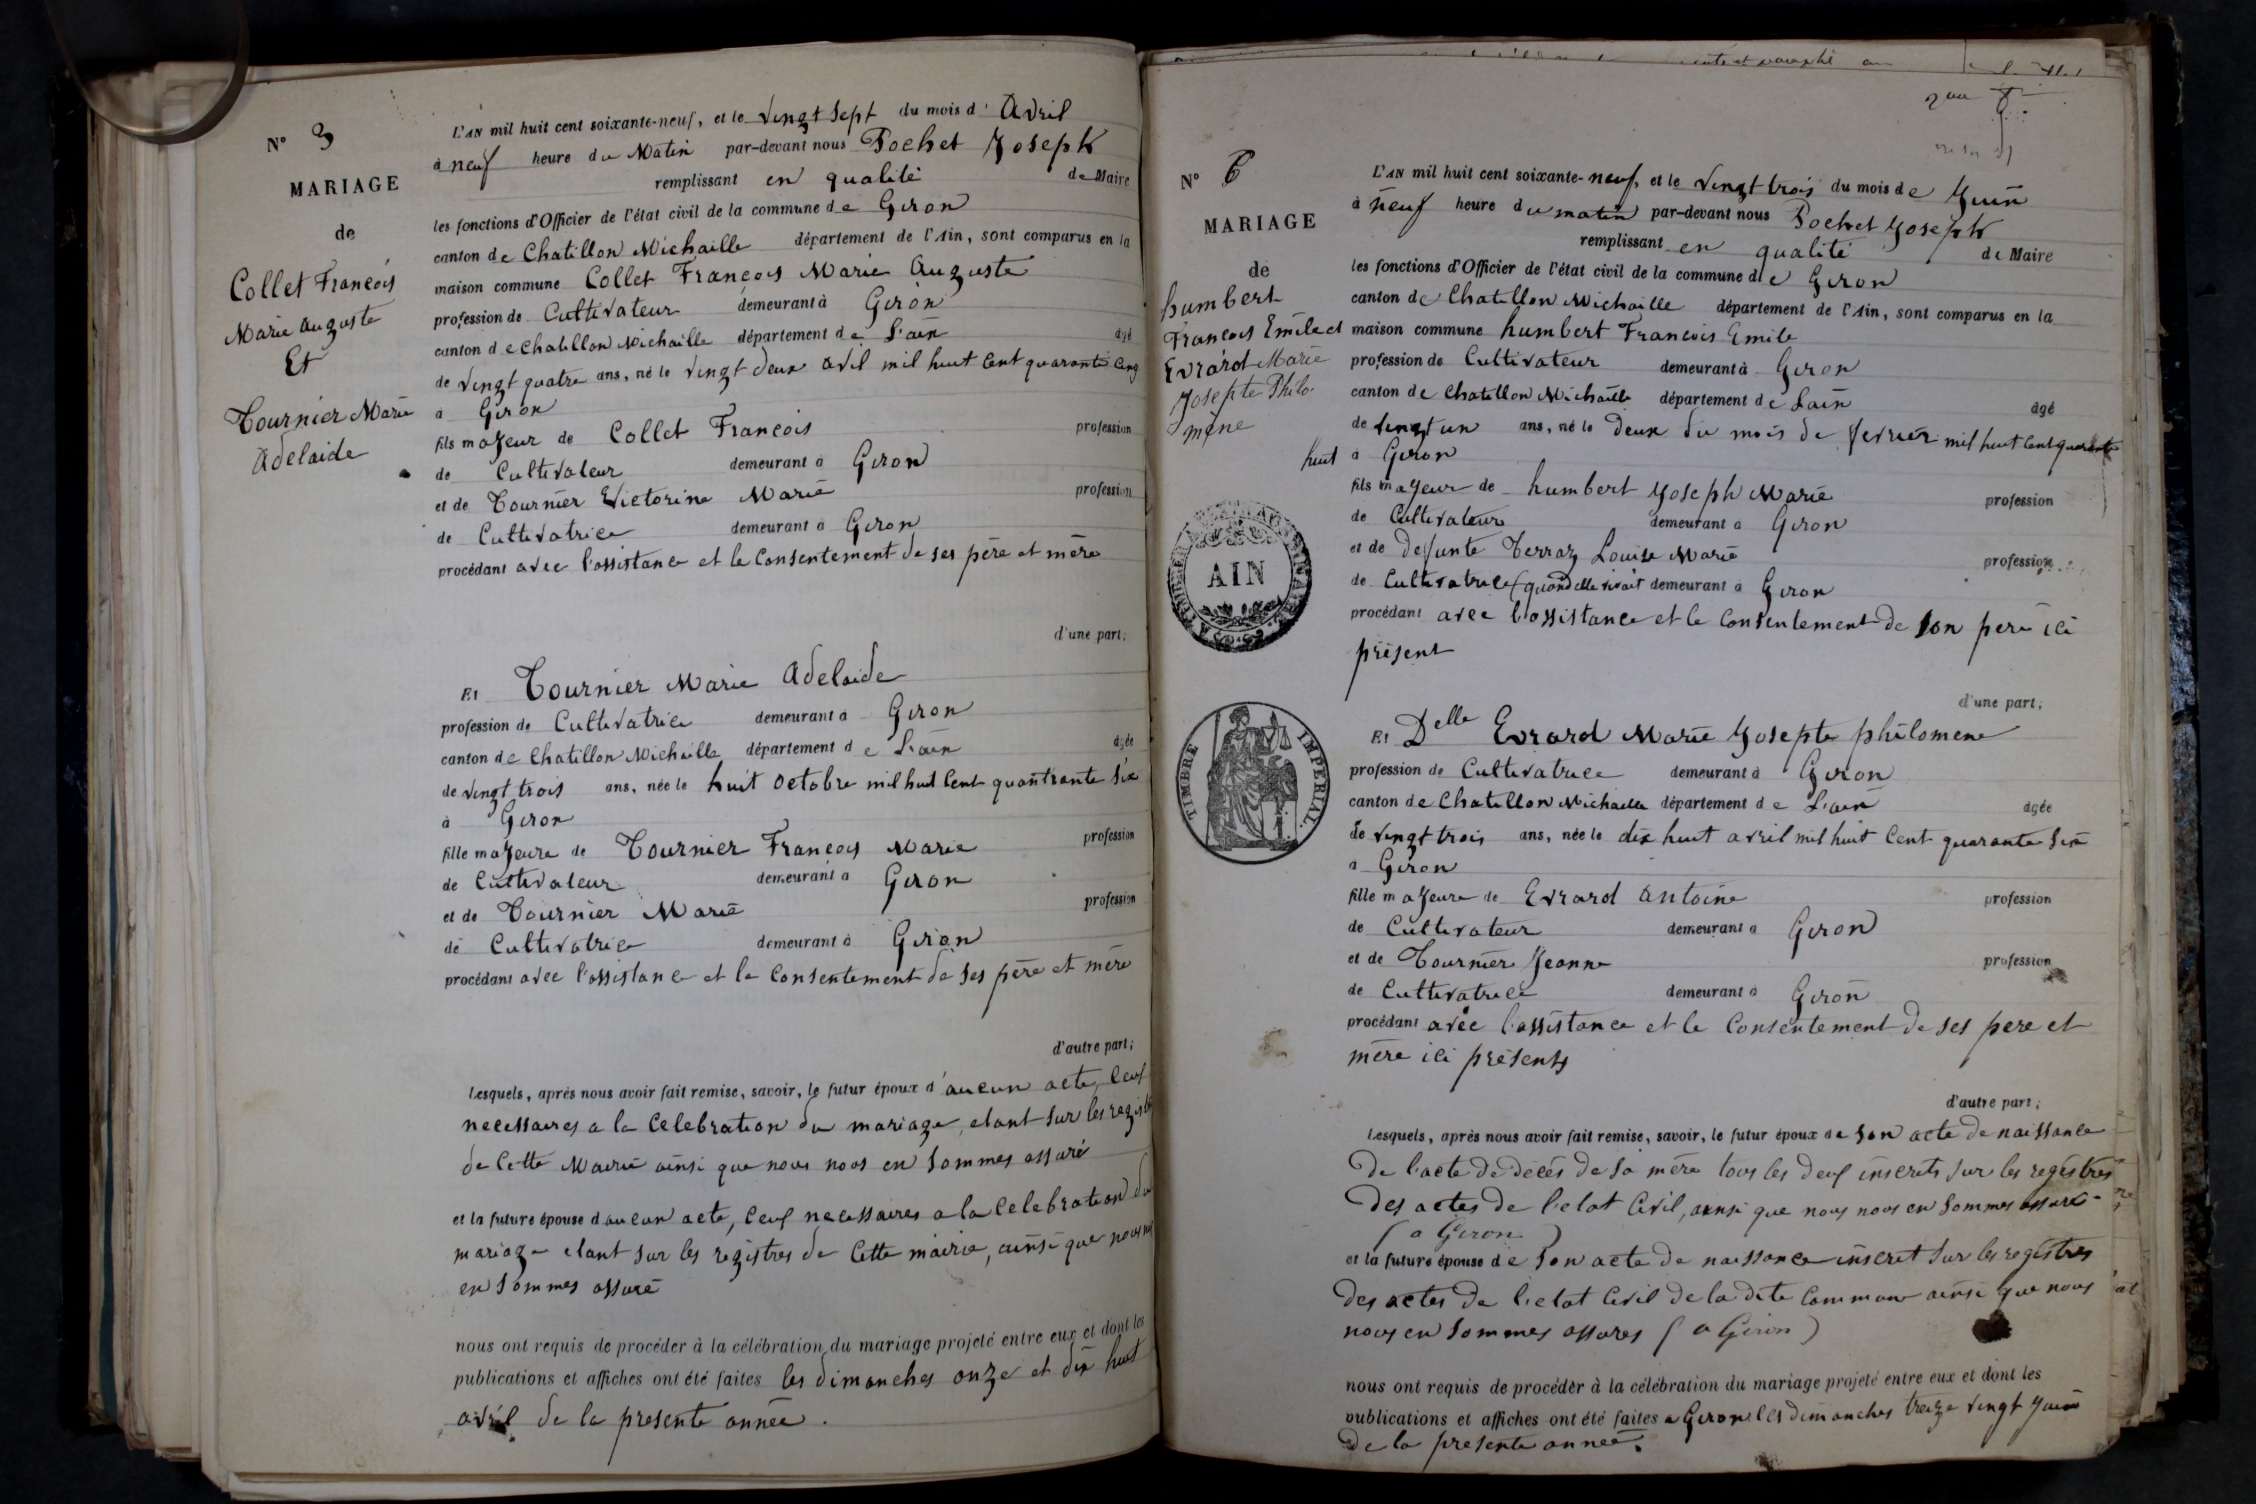 N° 3
MARIAGE
de
Collet François
Marie Auguste
Et
Tournier Marie
Adelaide
L'AN mil huit cent soixante-neuf, et le vingt sept du mois d' Avril
à neuf heure du Matin par-devant nous Pochet Joseph
remplissant en qualité de Maire
les fonctions d'Officier de l'état civil de la commune de Giron
canton de Chatillon Michaille département de l'Ain, sont comparus en la
maison commune Collet François Marie Auguste
profession de Cultivateur demeurant à Giron
canton de Chatillon Michaille département de L'ain âgé
de vingt quatre ans, né le vingt deux avil mil huit cent quarante cinq
à Giron
fils majeur de Collet François profession
de Cultivateur demeurant à Giron
et de Tournier Victorine Marie profession
de Cultivatrice demeurant à Giron
procédant avec l'assistance et le consentement de ses père et mère
d'une part;
Et Tournier Marie Adelaide
profession de Cultivatrice demeurant à Giron
canton de Chatillon Michaille département de L'ain âgée
de vingt trois ans, née le huit octobre mil huit cent quantrante six
à Giron
fille majeure de Tournier François Marie profession
de Cultivateur demeurant à Giron
et de Tournier Marie profession
de Cultivatrice demeurant à Giron
procédant avec l'assistance et le consentement de ses père et mère
d'autre part;
Lesquels, après nous avoir fait remise, savoir, le futur époux d'aucun acte, ceux
necessaires a la celebration du mariage, etant sur les registres
de cette Mairie ainsi que nous nous en sommes assuré
et la future épouse d'aucun acte, ceux necessaires a la celebration du
mariage etant sur les registres de cette mairie, ainsi que nous nous
en sommes assuré
nous ont requis de procéder à la célébration du mariage projeté entre eux et dont les
publications et affiches ont été faites les dimanches onze et dix huit
avril de la presente année.
N° 6
MARIAGE
de
humbert
François Emile et
Evrard Marie
Josepte Philo-
mène
AIN
TIMBRE IMPERIAL
L'AN mil huit cent soixante-neuf, et le vingt trois du mois de Juin
à neuf heure du matin par-devant nous Pochet Joseph
remplissant en qualité de Maire
les fonctions d'Officier de l'état civil de la commune de Giron
canton de Chatillon Michaille département de l'Ain, sont comparus en la
maison commune humbert François Emile
profession de Cultivateur demeurant à Giron
canton de Chatillon Michaille département de L'ain âgé
de vingt un ans, né le deux du mois de fevrier mil huit cent quarante
huit à Giron
fils majeur de humbert Joseph Marie profession
de Cultivateur demeurant à Giron
et de defunte Terraz Louise Marie profession
de Cultivatrice (quand elle vivait demeurant à Giron
procédant avec l'assistance et le consentement de son pere ici
présent
d'une part;
Et Delle Evrard Marie Josepte philomene
profession de Cultivatrice demeurant à Giron
canton de Chatillon Michaille département de L'ain âgée
de vingt trois ans, née le dix huit avril mil huit cent quarante six
à Giron
fille majeure de Evrard Antoine profession
de Cultivateur demeurant à Giron
et de Tournier Jeanne profession
de Cultivatrice demeurant à Giron
procédant avec l'assistance et le consentement de ses pere et
mère ici présents
d'autre part;
Lesquels, après nous avoir fait remise, savoir, le futur époux de son acte de naissance
De l'acte de décés de sa mère tous les deux inscrits sur les registres
des actes de l'etat civil, ainsi que nous nous en sommes assuré
(a Giron)
et la future épouse de son acte de naissance inscrit sur les registres
des actes de l'etat civil de la dite commune ainsi que nous
nous en sommes assures (a Giron)
nous ont requis de procéder à la célébration du mariage projeté entre eux et dont les
publications et affiches ont été faites a Giron les dimanches treize vingt juin
de la presente année.